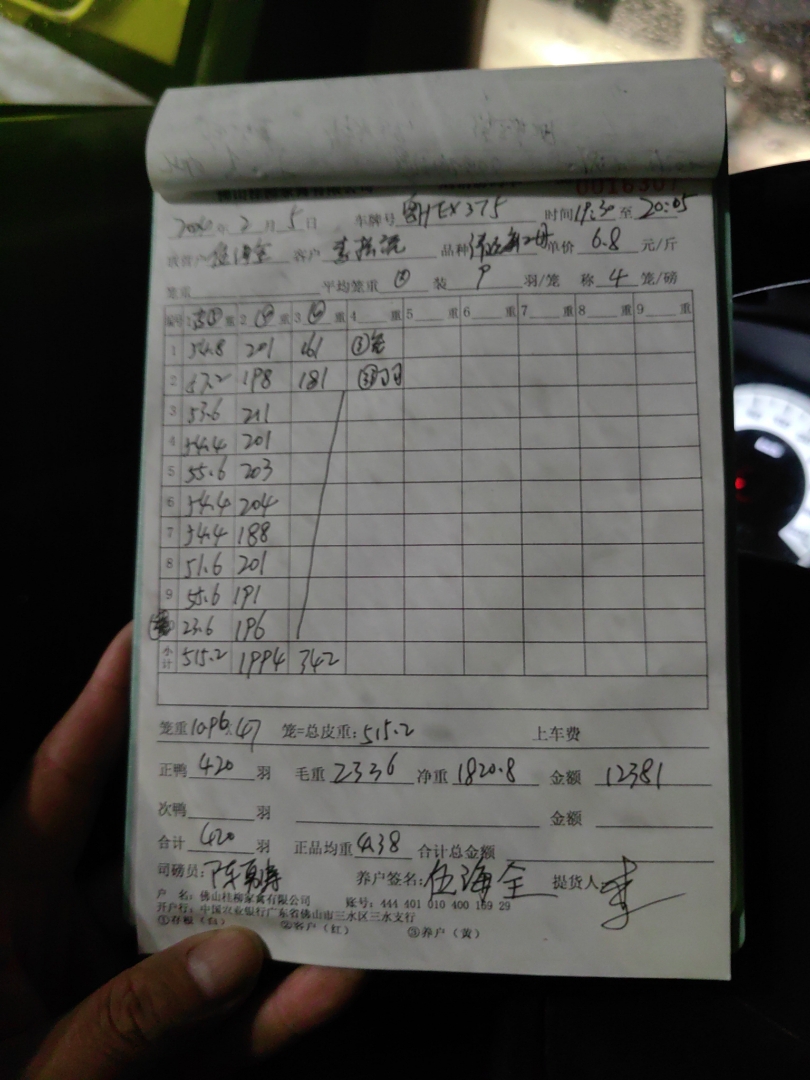 佛山桂柳家禽有限公司 0016307
年 2 月 5 日 车牌号 粤HEX375 时间 19:30 至 20:05
客户 品种 单价 6.8 元/斤
笼重 平均笼重 装 9 羽/笼 称 4 笼/磅
编号 重 2 重 3 重 4 重 5 重 6 重 7 重 8 重 9 重
1 54.8 201 161
2 57.2 198 181
3 53.6 211
4 54.4 201
5 55.6 203
6 54.4 204
7 54.4 188
8 51.6 201
9 55.6 191
23.6 196
小计 515.2 1994 342
笼重 10.96 47 笼=总皮重: 515.2 上车费
正鸭 420 羽 毛重 2336 净重 1820.8 金额 12381
次鸭 羽 金额
合计 420 羽 正品均重 4.38 合计总金额
司磅员: 养户签名: 伍海全 提货人 李
户 名: 佛山桂柳家禽有限公司 账号: 444 401 010 400 169 29
开户行: 中国农业银行广东省佛山市三水区三水支行
①存根(白) ②客户(红) ③养户(黄)